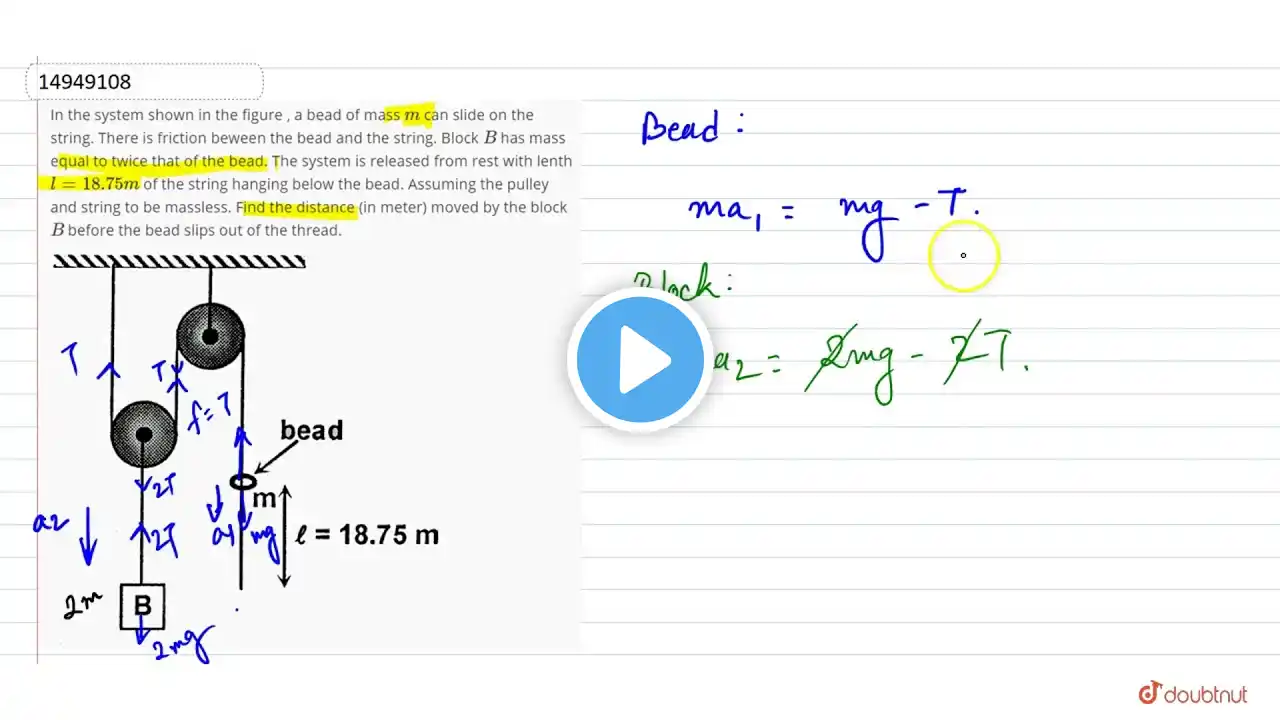 14949108
In the system shown in the figure , a bead of mass m can slide on the
string. There is friction beween the bead and the string. Block B has mass
equal to twice that of the bead. The system is released from rest with lenth
l = 18.75m of the string hanging below the bead. Assuming the pulley
and string to be massless. Find the distance (in meter) moved by the block
B before the bead slips out of the thread.
Bead :
ma₁ = mg - T.
Block :
a₂ = 2mg - 2T.
T
T
f = T
bead
m
2T
a₂
2T
a₁
mg
ℓ = 18.75 m
2m
B
2mg
doubtnut